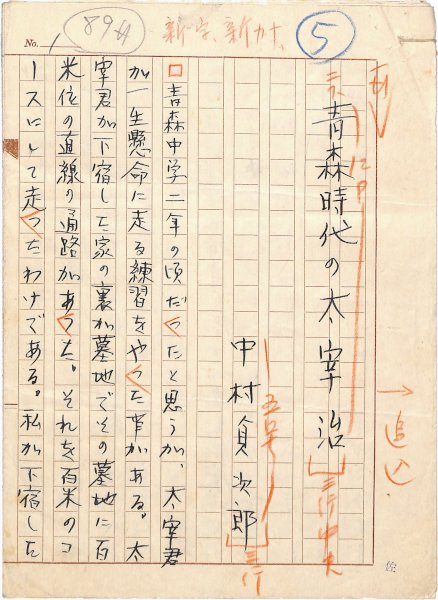 No. 1
新字、新カナ
5
追込
12P
青森時代の太宰治
三行中央
中村貞次郎
五号
三行
青森中学二年の頃だったと思うが、太宰君
が一生懸命に走る練習をやった事がある。太
宰君が下宿した家の裏が墓地でその墓地に百
米位の直線の通路があった。それを百米のコ
ースにして走ったわけである。私が下宿した